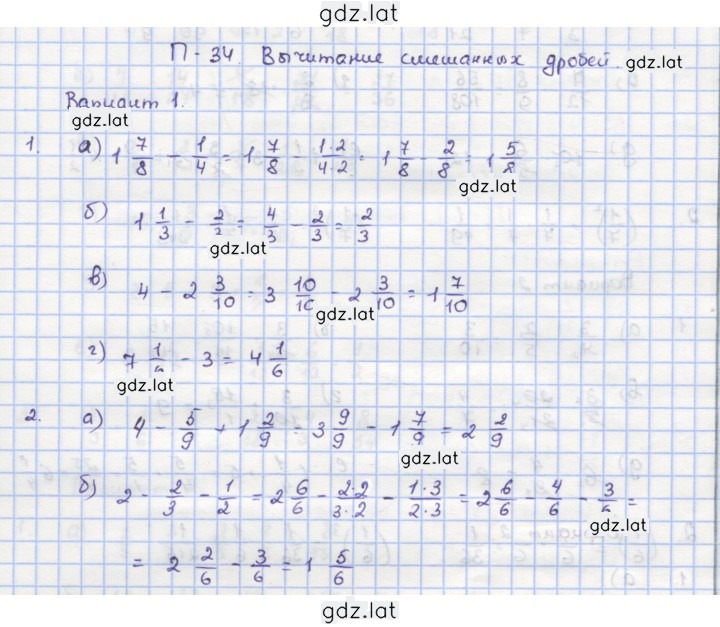 gdz.lat
П-34. Вычитание смешанных дробей.
gdz.lat
Вариант 1.
gdz.lat
1. а) 1 7/8 - 1/4 = 1 7/8 - 1·2/4·2 = 1 7/8 - 2/8 = 1 5/8
gdz.lat
б) 1 1/3 - 2/3 = 4/3 - 2/3 = 2/3
gdz.lat
в) 4 - 2 3/10 = 3 10/10 - 2 3/10 = 1 7/10
gdz.lat
г) 7 1/6 - 3 = 4 1/6
gdz.lat
2. а) 4 - 5/9 + 1 2/9 = 3 9/9 - 1 7/9 = 2 2/9
gdz.lat
б) 2 - 2/3 - 1/2 = 2 6/6 - 2·2/3·2 - 1·3/2·3 = 2 6/6 - 4/6 - 3/6 =
gdz.lat
= 2 2/6 - 3/6 = 1 5/6
gdz.lat